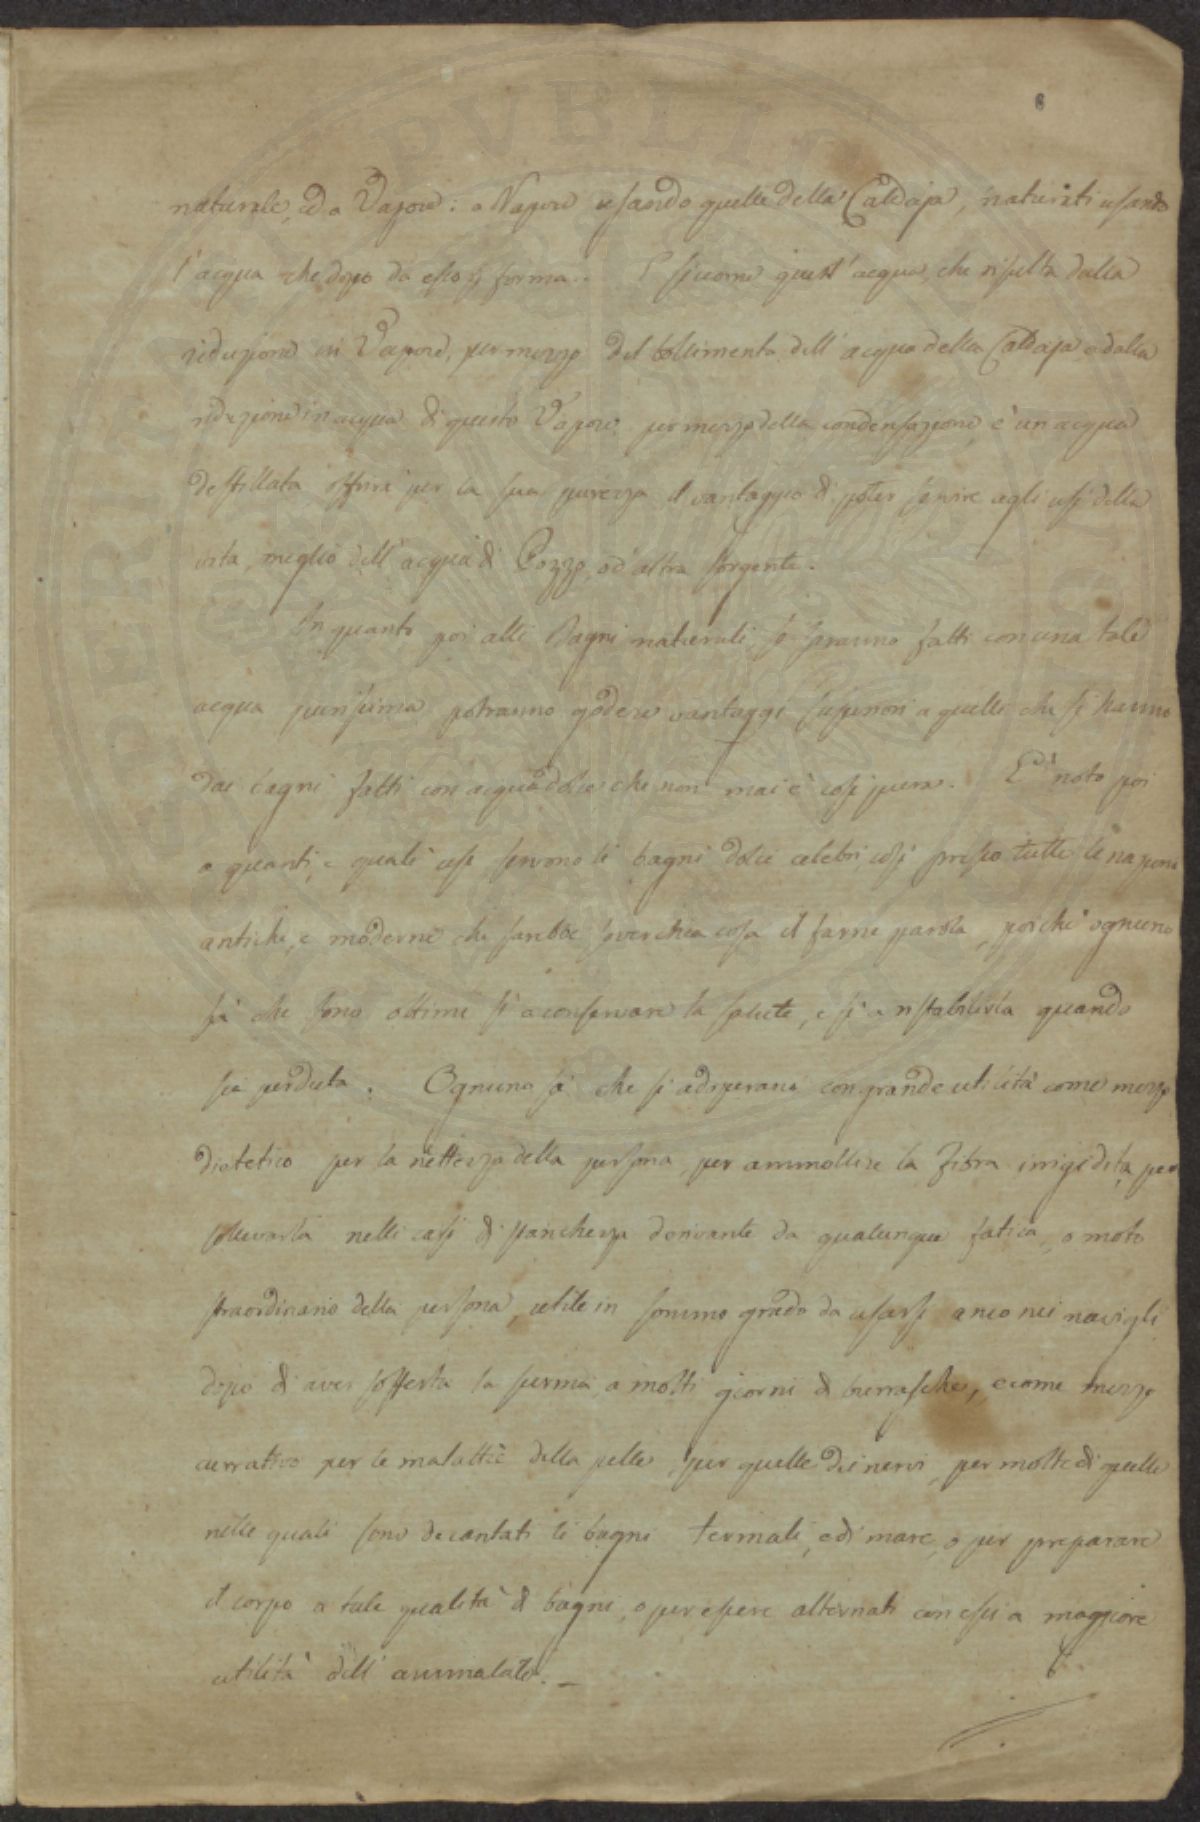 6
naturale, ed a Vapore: a Vapore usando quelle della Caldaja, naturali usando
l'acqua che dopo da esso si forma.. E siccome quest'acqua, che risulta dalla
riduzione in Vapore, per mezzo del bollimento dell'acqua della Caldaja e dalla
riduzione in acqua di questo Vapore per mezzo della condensazione, è un acqua
destillata offrirà per la sua purezza il vantaggio di poter servire agli usi della
vita, meglio dell'acqua di Pozzo, o d'altra sorgente.
In quanto poi alli Bagni naturali, se saranno fatti con una tale
acqua purissima potranno godere vantaggi superiori a quelli che si hanno
dai bagni fatti con acqua dolce che non mai è così pura. E' noto poi
a quanti, e quali usi servono li bagni dolci celebri così presso tutte le nazioni
antiche, e moderne che sarebbe soverchia cosa il farne parola, poichè ognuno
sà che sono ottimi sì a conservare la salute, e sì a ristabilirla quando
sia perduta. Ognuno sà che si adoperano con grande utilità come mezzo
dietetico per la nettezza della persona, per ammollire la fibra irrigidita, per
sollevarla nelli casi di stanchezza derivante da qualunque fatica, o moto
straordinario della persona, utile in sommo grado da usarsi anco nei navigli
dopo di aver sofferta la fermà a molti giorni di burrasche, e come mezzo
currativo per le malattie della pelle, per quelle dei nervi, per molte di quelle
nelle quali sono decantati li bagni termali, e di mare, o per preparare
il corpo a tale qualità di bagni, o per essere alternati con essi a maggiore
utilità dell'ammalato. _